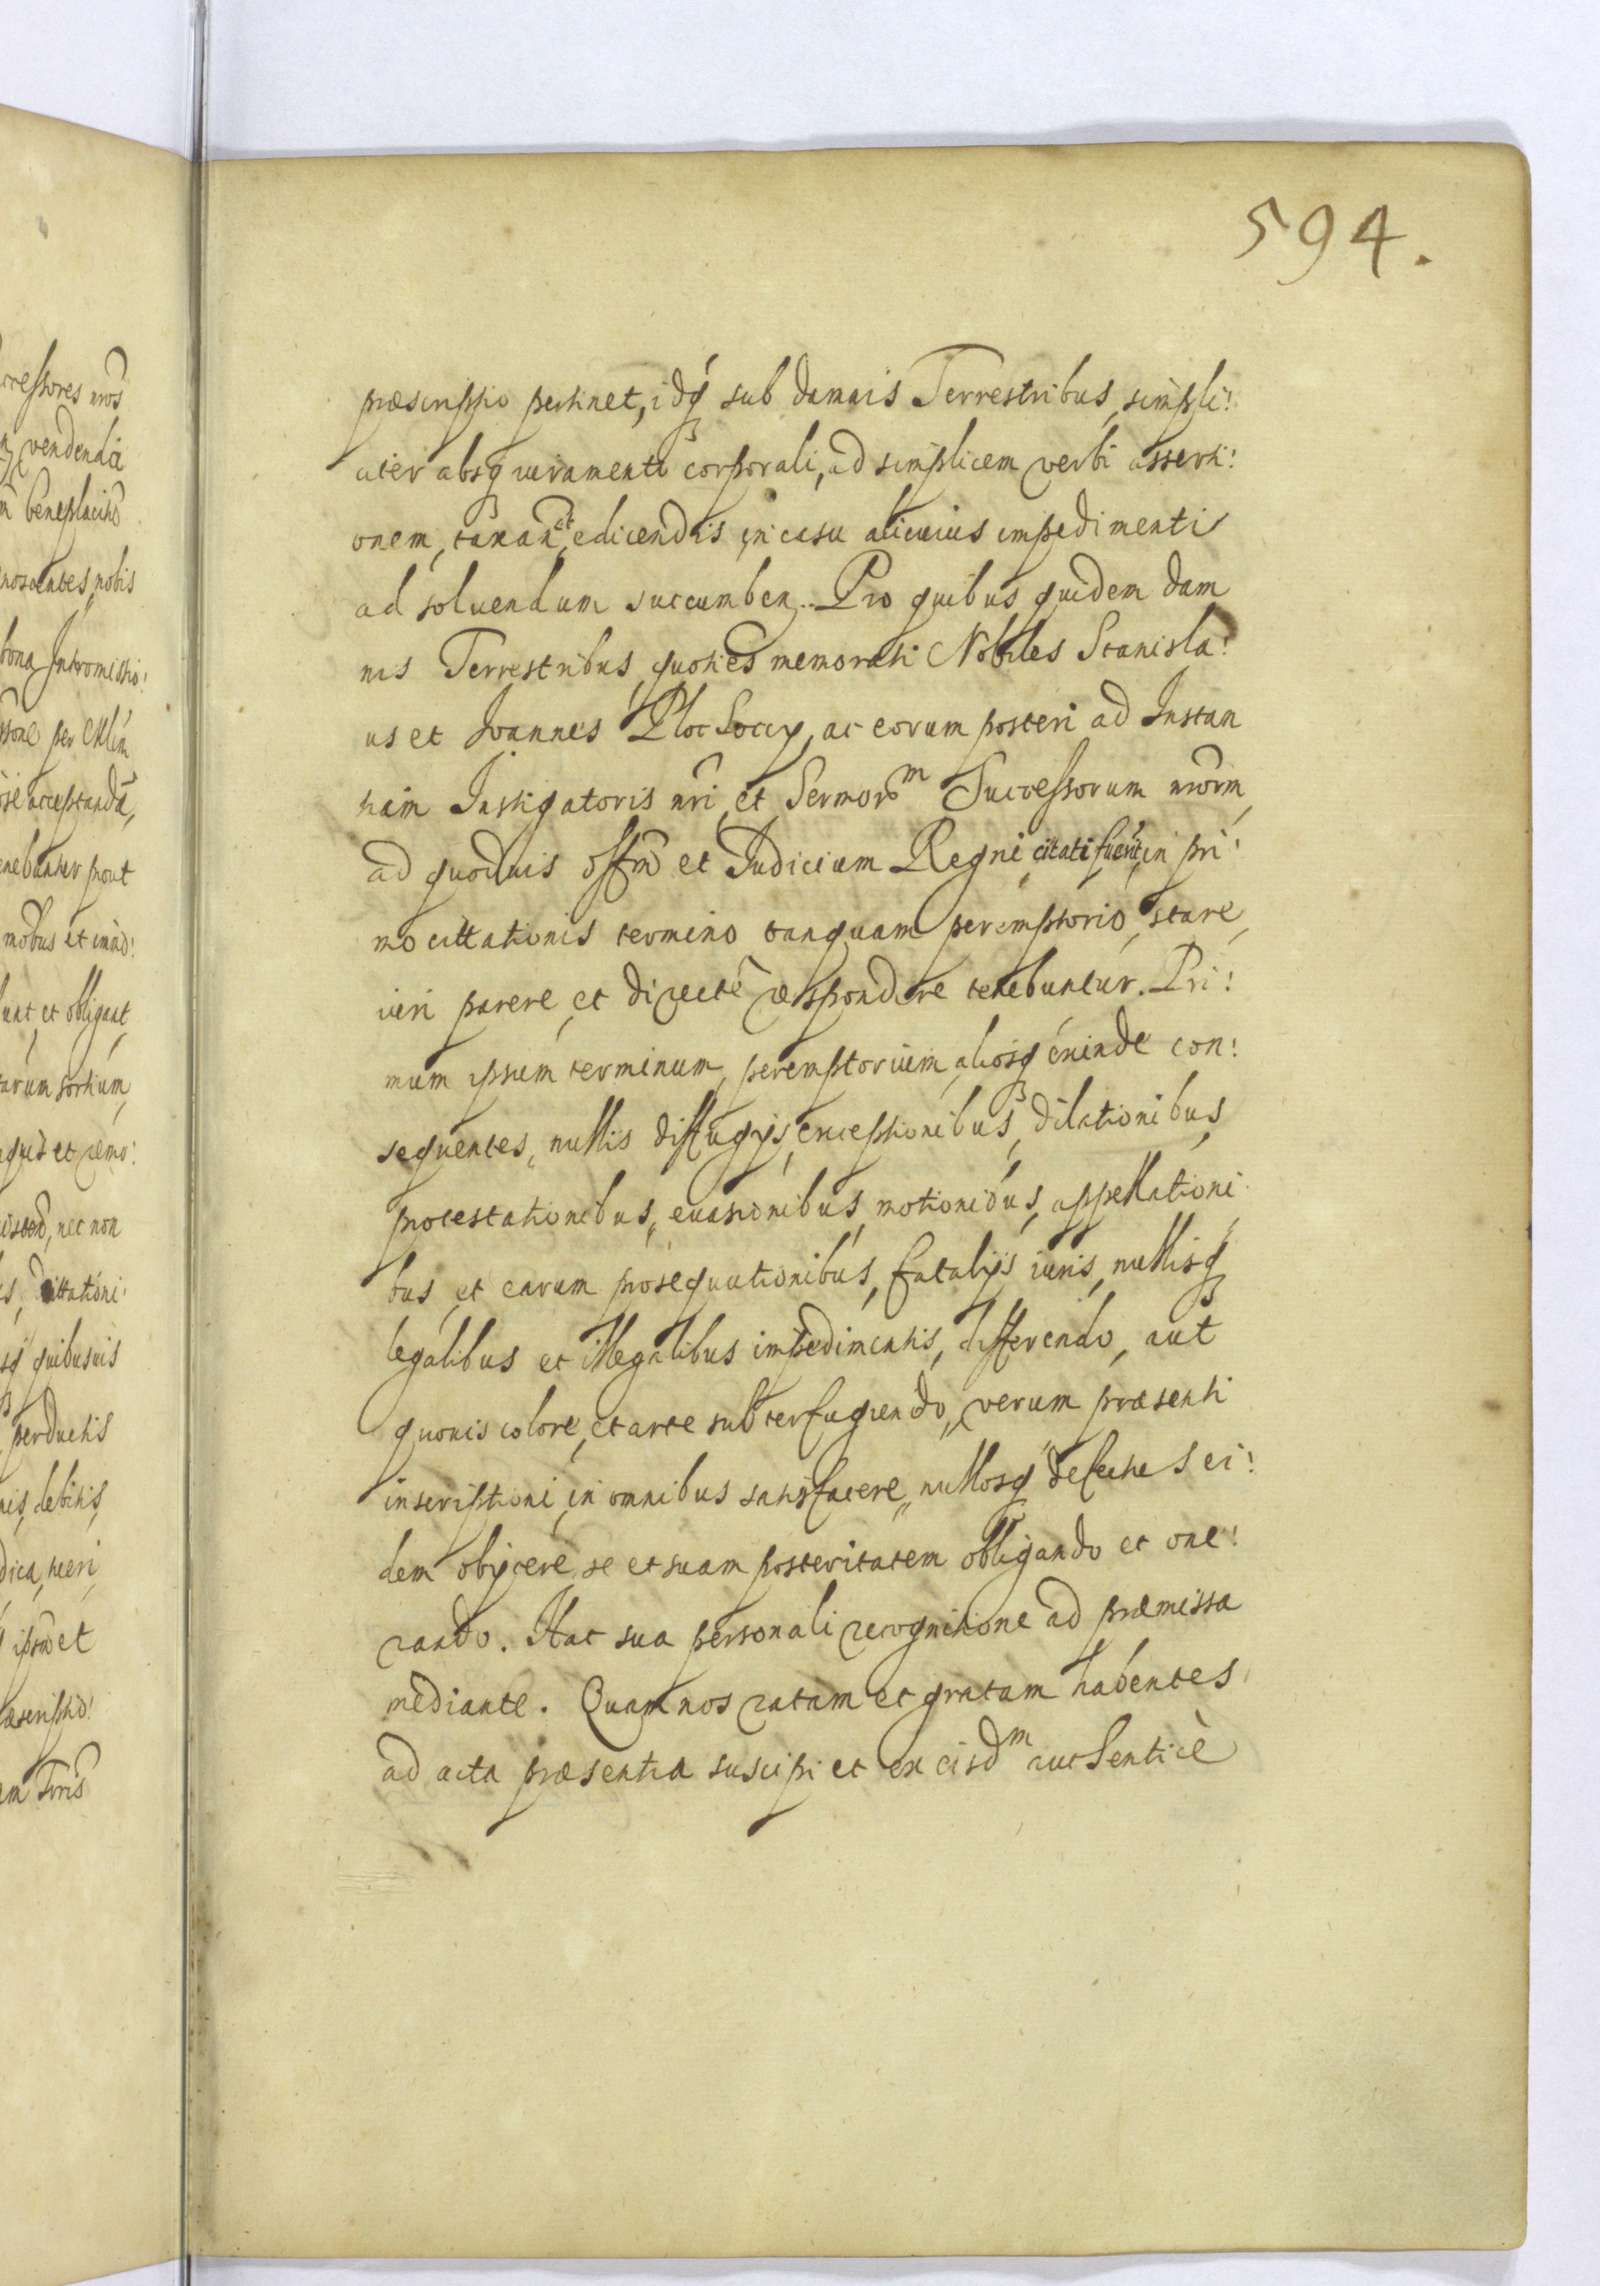 594.
præscriptio pertinet, idq́ sub damnis Terrestribus, simpli:
citer absq iuramento corporali, ad simplicem verbi asserti:
onem, taxan et edicendis, in casu alicuius impedimenti
ad soluendum succumben. Pro quibus quidem dam
nis Terrestribus, quoties memorati Nobiles Stanisla:
us et Joannes Plochoccy, ac eorum posteri ad Instan
tiam Instigatoris nri, et Sermorm Successorum nrorm,
ad quoduis offm et Judicium Regni, citati fuerit, in pri:
mo cittationis termino tanquam peremptorio, stare,
iuri parere, et directe respondere tenebuntur. Pri:
mum ipsum terminum, peremptorium, aliosq exinde con:
sequentes, nullis diffugijs, exceptionibus, dilationibus,
protestationibus, euasionibus, motionibus, appellationi
bus, et earum prosequutionibus, fatalijs iuris, nullisq
legalibus et illegalibus impedimentis, differendo, aut
quouis colore, et arte subterfugiendo, verum præsenti
inscriptioni, in omnibus satisfacere, nullosq defectus ei:
dem obijcere, se et suam posteritatem obligando et one:
rando. Hac sua personali recognitione ad præmissa
mediante. Quam nos ratam et gratam habentes,
ad acta præsentia suscipi et ex eisdm authenticè
cessores nros
vendendã
beneplacito
noscentes, nobis
bona Intromissio:
per
acceptandã,
nebuntur prout
et
unt, et obligant,
arum sortium,
et remo:
nec non
quibusuis
perductis
debitis,
ipsm et